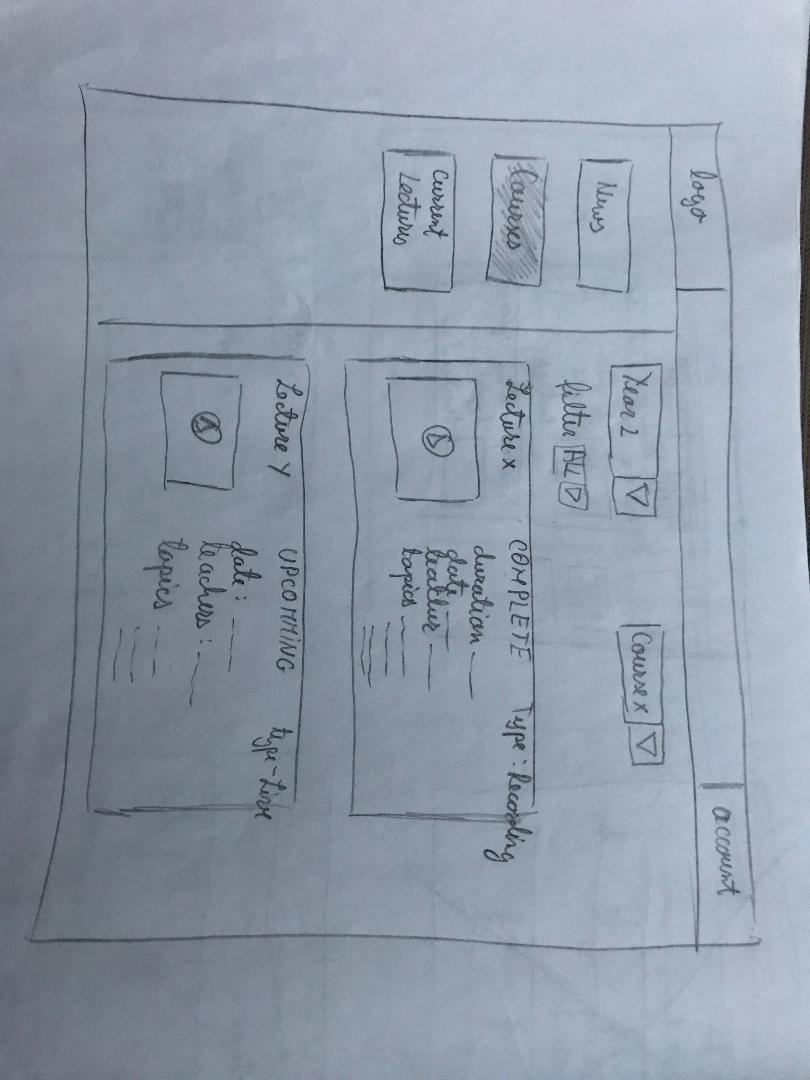 logo
account
News
Courses
Current
Lectures
Year 2
Course x
filter ALL
Lecture x COMPLETE Type: Recording
duration
date
teacher
topics
Lecture Y UPCOMMING type-Live
date:
teachers:
topics